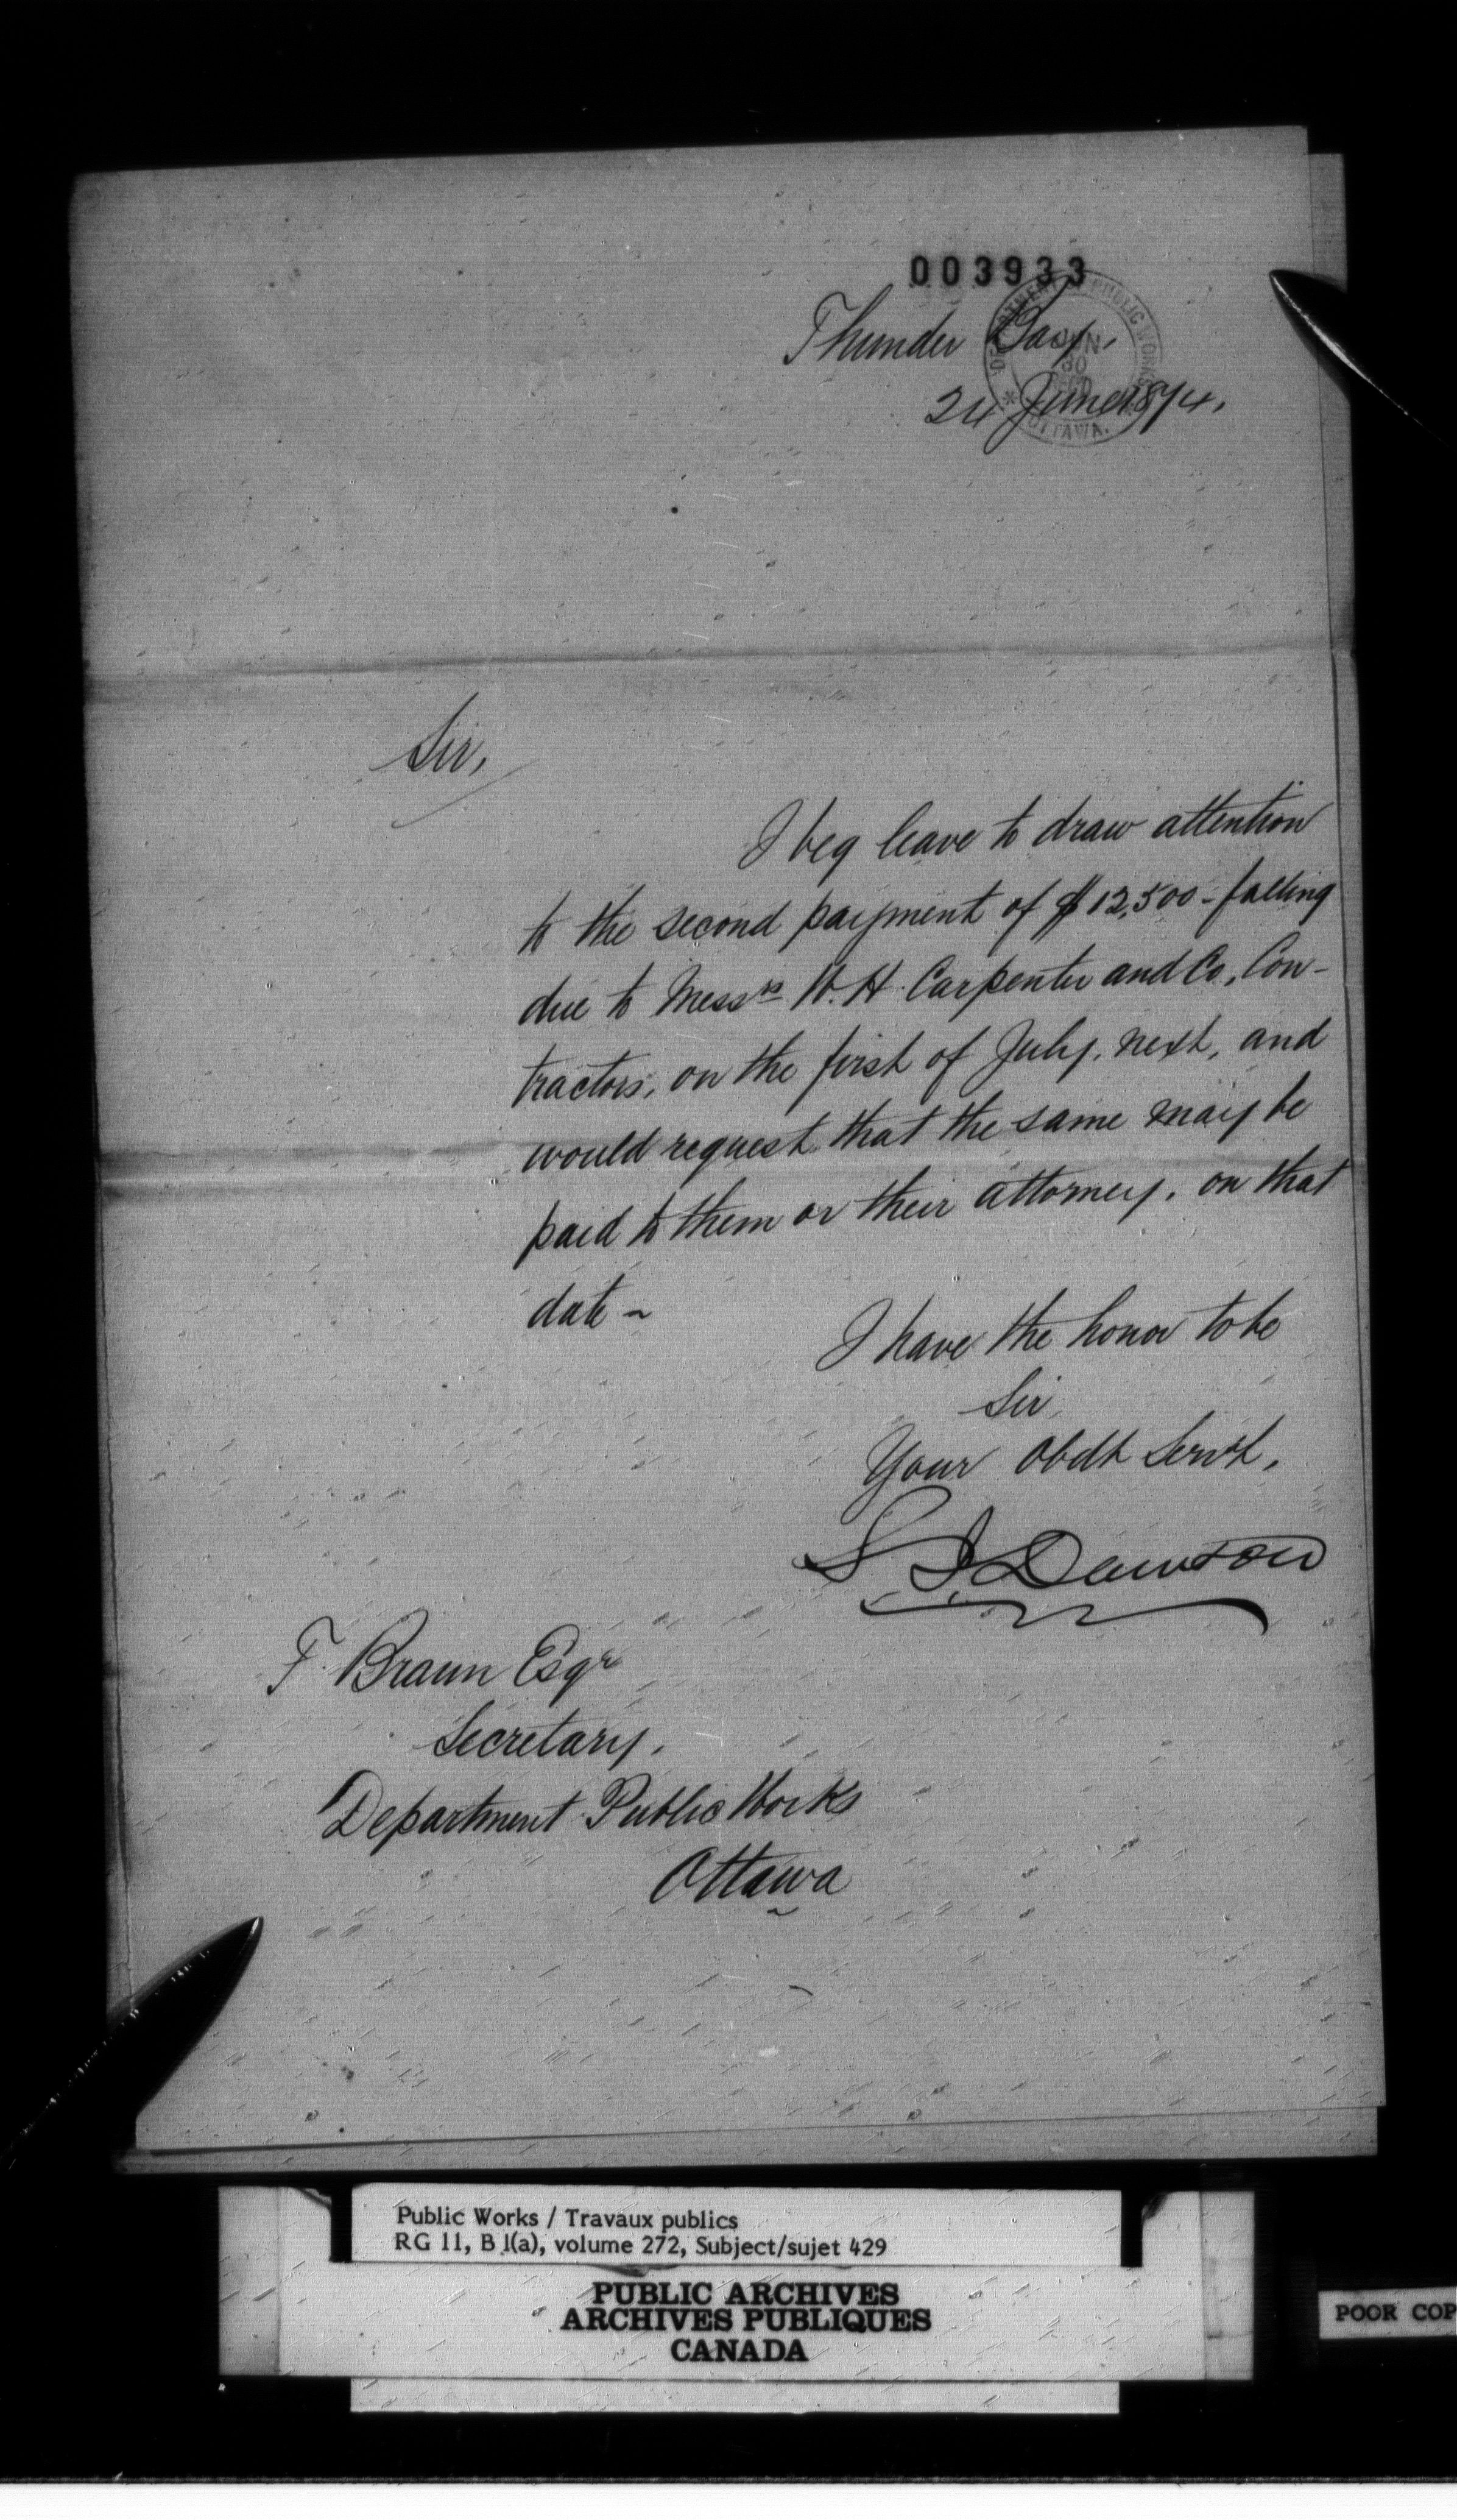 003933
DEPARTMENT OF PUBLIC WORKS
JUN
30
RECD
OTTAWA.
Thunder Bay,
24 June 1874.
Sir,
I beg leave to draw attention
to the second payment of $12,500 - falling
due to Messrs W. H. Carpenter and Co, Con-
tractors, on the first of July, next, and
would request that the same may be
paid to them or their attorney, on that
date -
I have the honor to be
Sir
Your Obdt Servt,
S J Dawson
F. Braun Esqr
Secretary,
Department Public Works
Ottawa
Public Works / Travaux publics
RG 11, B 1(a), volume 272, Subject/sujet 429
PUBLIC ARCHIVES
ARCHIVES PUBLIQUES
CANADA
POOR COP